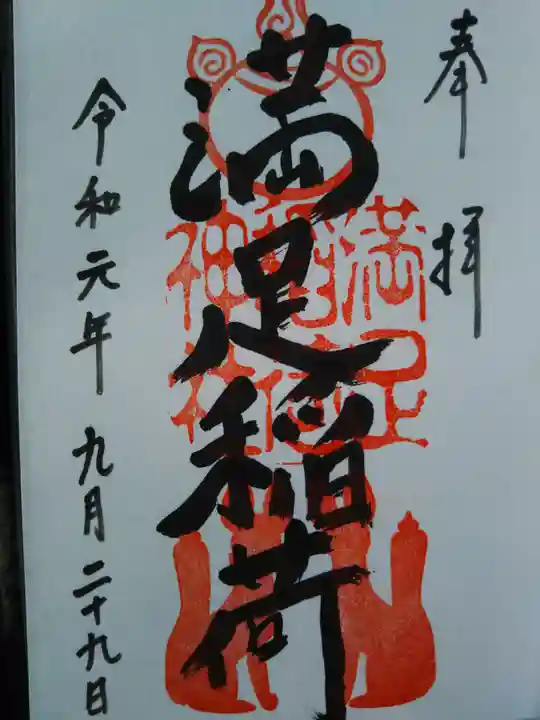 奉拝
満足稲荷
満足
稲荷
神社
令和元年九月二十九日